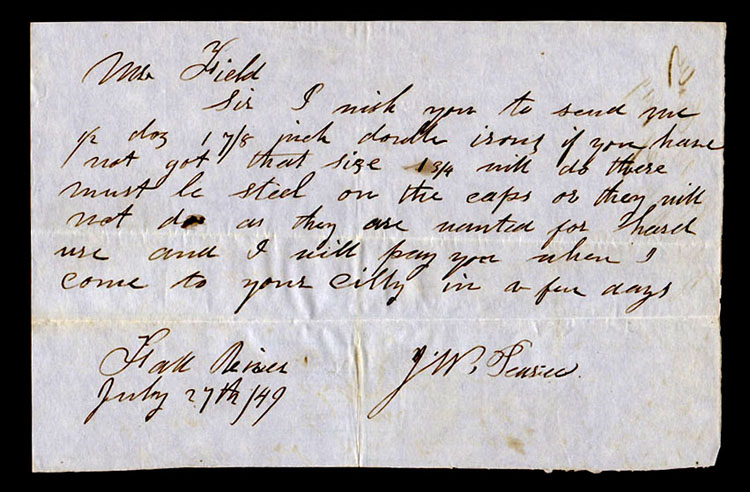 Mr Field
Sir I wish you to send me
1/2 doz 1 7/8 inch double irons if you have
not got that size 1 3/4 will do there
must be steel on the caps or they will
not do as they are wanted for hard
use and I will pay you when I
come to your citty in a few days
Fall River
July 27th /49
J. W.